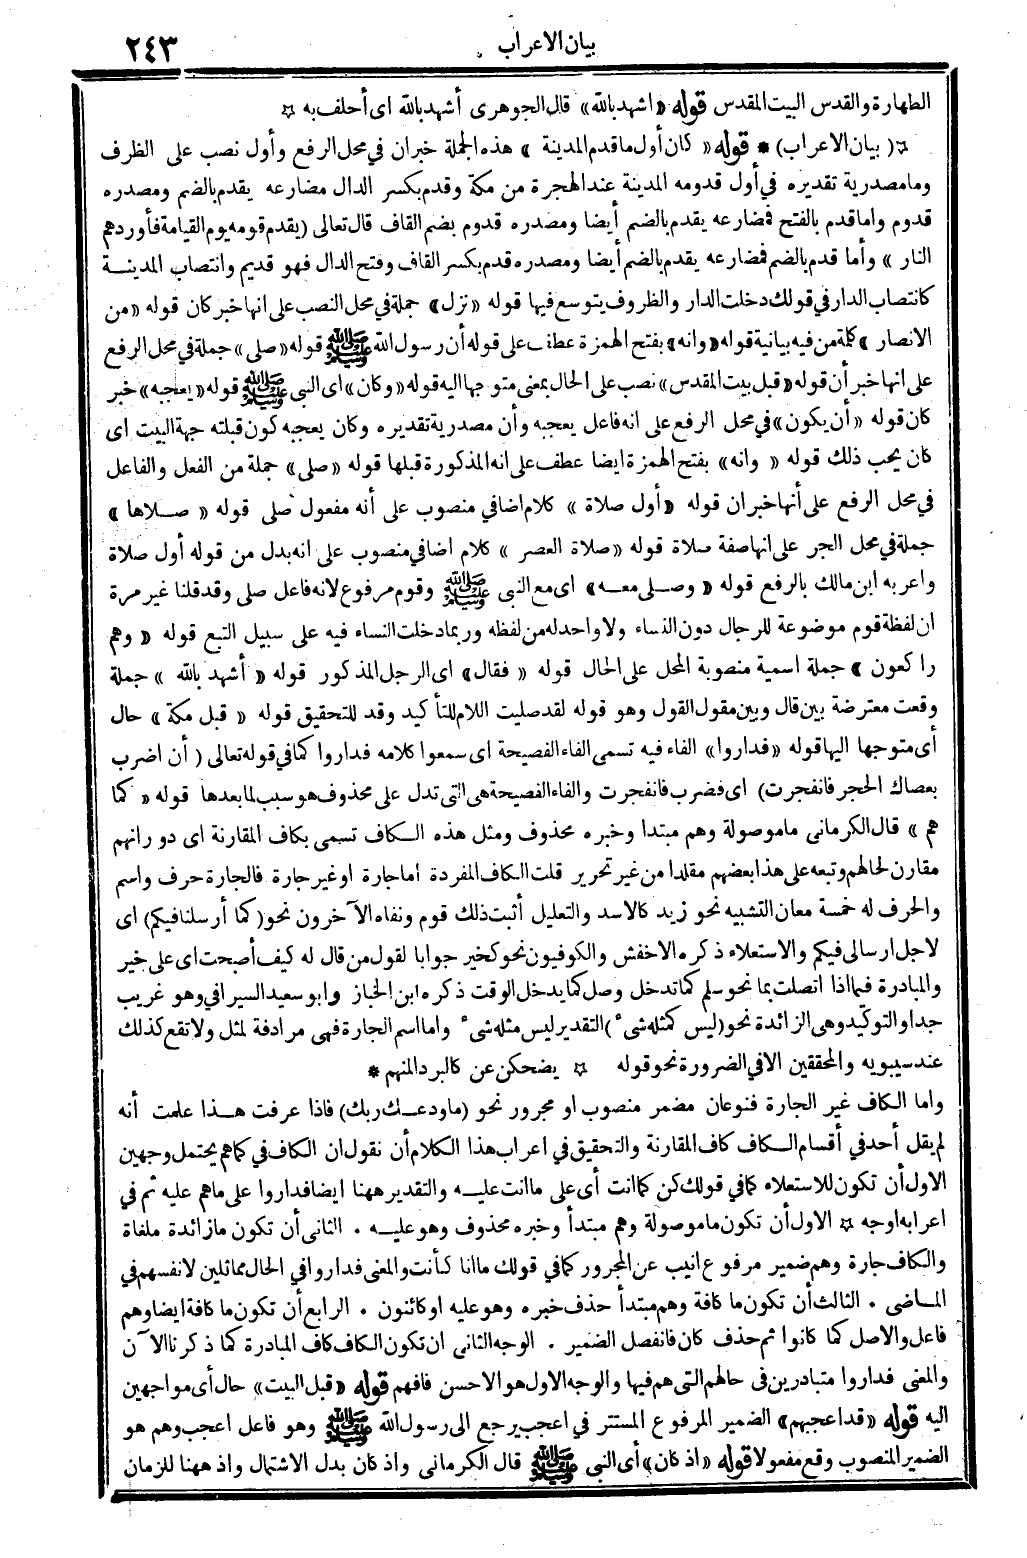 بيان الاعراب
٢٤٣
الطهارة والقدس البيت المقدس قوله «اشهد بالله» قال الجوهرى أشهد بالله اى أحلف به ☆
☆ ( بيان الاعراب) * قوله « كان أول ما قدم المدينة » هذه الجملة خبر ان في محل الرفع وأول نصب على الظرف
وما مصدرية تقديره في أول قدومه المدينة عند الهجرة من مكة وقدم بكسر الدال مضارعه يقدم بالضم ومصدره
قدوم واما قدم بالفتح فمضارعه يقدم بالضم أيضا ومصدره قدوم بضم القاف قال تعالى (يقدم قومه يوم القيامة فأوردهم
النار » وأما قدم بالضم فمضارعه يقدم بالضم أيضا ومصدره قدم بكسر القاف وفتح الدال فهو قديم وانتصاب المدينة
كانتصاب الدار في قولك دخلت الدار والظروف يتوسع فيها قوله «نزل» جملة في محل النصب على انها خبر كان قوله «من
الانصار » كلمة من فيه بيانية قوله «وانه» بفتح الهمزة عطف على قوله أن رسول الله ﷺ قوله «صلى» جملة في محل الرفع
على انها خبر أن قوله «قبل بيت المقدس» نصب على الحال بمعنى متوجها اليه قوله «وكان» اى النبى ﷺ قوله «يعجبه» خبر
كان قوله «أن يكون» في محل الرفع على انه فاعل يعجبه وأن مصدرية تقديره وكان يعجبه كون قبلته جهة البيت اى
كان يحب ذلك قوله « وانه» بفتح الهمزة ايضا عطف على انه المذكورة قبلها قوله «صلى» جملة من الفعل والفاعل
في محل الرفع على أنها خبر ان قوله «أول صلاة » كلام اضافي منصوب على أنه مفعول صلى قوله « صلاها »
جملة في محل الجر على انها صفة صلاة قوله «صلاة العصر » كلام اضافي منصوب على انه بدل من قوله أول صلاة
واعربه ابن مالك بالرفع قوله « وصلى معه» اى مع النبى ﷺ وقوم مرفوع لانه فاعل صلى وقد قلنا غير مرة
ان لفظة قوم موضوعة للرجال دون النساء ولا واحد له من لفظه وربما دخلت النساء فيه على سبيل التبع قوله « وهم
راكعون » جملة اسمية منصوبة المحل على الحال قوله « فقال» اى الرجل المذكور قوله « أشهد بالله » جملة
وقعت معترضة بين قال وبين مقول القول وهو قوله لقد صليت اللام للتأكيد وقد للتحقيق قوله « قبل مكة » حال
أى متوجها اليها قوله «فداروا» الفاء فيه تسمى الفاء الفصيحة اى سمعوا كلامه فداروا كما في قوله تعالى ( أن اضرب
بعصاك الحجر فانفجرت) اى فضرب فانفجرت والفاء الفصيحة هى التى تدل على محذوف هو سبب لما بعدها قوله « كما
هم » قال الكرمانى ما موصولة وهم مبتدا وخبره محذوف ومثل هذه الكاف تسمى بكاف المقارنة اى دورانهم
مقارن لحالهم وتبعه على هذا بعضهم مقلدا من غير تحرير قلت الكاف المفردة اما جارة او غير جارة فالجارة حرف واسم
والحرف له خمسة معان التشبيه نحو زيد كالاسد والتعليل أثبت ذلك قوم ونفاه الآخرون نحو (كما أرسلنا فيكم) اى
لاجل ارسالى فيكم والاستعلاء ذكره الاخفش والكوفيون نحو كخير جوابا لقول من قال له كيف أصبحت اى على خير
والمبادرة فيما اذا اتصلت بما نحو سلم كما تدخل وصل كما يدخل الوقت ذكره ابن الخباز وابو سعيد السيرافي وهو غريب
جدا والتوكيد وهى الزائدة نحو (ليس كمثله شىء) التقدير ليس مثله شىء واما اسم الجارة فهى مرادفة لمثل ولا تقع كذلك
عند سيبويه والمحققين الا في الضرورة نحو قوله ☆ يضحكن عن كالبرد المنهم *
واما الكاف غير الجارة فنوعان مضمر منصوب او مجرور نحو (ما ودعك ربك) فاذا عرفت هذا علمت أنه
لم يقل أحد في أقسام الكاف كاف المقارنة والتحقيق في اعراب هذا الكلام أن نقول ان الكاف في كما هم يحتمل وجهين
الاول أن تكون للاستعلاء كما في قولك كن كما انت أى على ما انت عليه والتقدير ههنا ايضا فداروا على ما هم عليه ثم في
اعرابه اوجه ☆ الاول أن تكون ما موصولة وهم مبتدأ وخبره محذوف وهو عليه . الثانى أن تكون ما زائدة ملغاة
والكاف جارة وهم ضمير مرفوع انيب عن المجرور كما في قولك ما انا كأنت والمعنى فداروا في الحال مماثلين لانفسهم في
الماضى . الثالث أن تكون ما كافة وهم مبتدأ حذف خبره وهو عليه او كائنون . الرابع أن تكون ما كافة ايضا وهم
فاعل والاصل كما كانوا ثم حذف كان فانفصل الضمير . الوجه الثانى ان تكون الكاف كاف المبادرة كما ذكرنا الآن
والمعنى فداروا متبادرين فى حالهم التى هم فيها والوجه الاول هو الاحسن فافهم قوله «قبل البيت» حال أى مواجهين
اليه قوله «قد اعجبهم» الضمير المرفوع المستتر في اعجب يرجع الى رسول الله ﷺ وهو فاعل اعجب وهم هو
الضمير المنصوب وقع مفعولا قوله «اذ كان» أى النبى ﷺ قال الكرمانى واذ كان بدل الاشتمال واذ ههنا للزمان